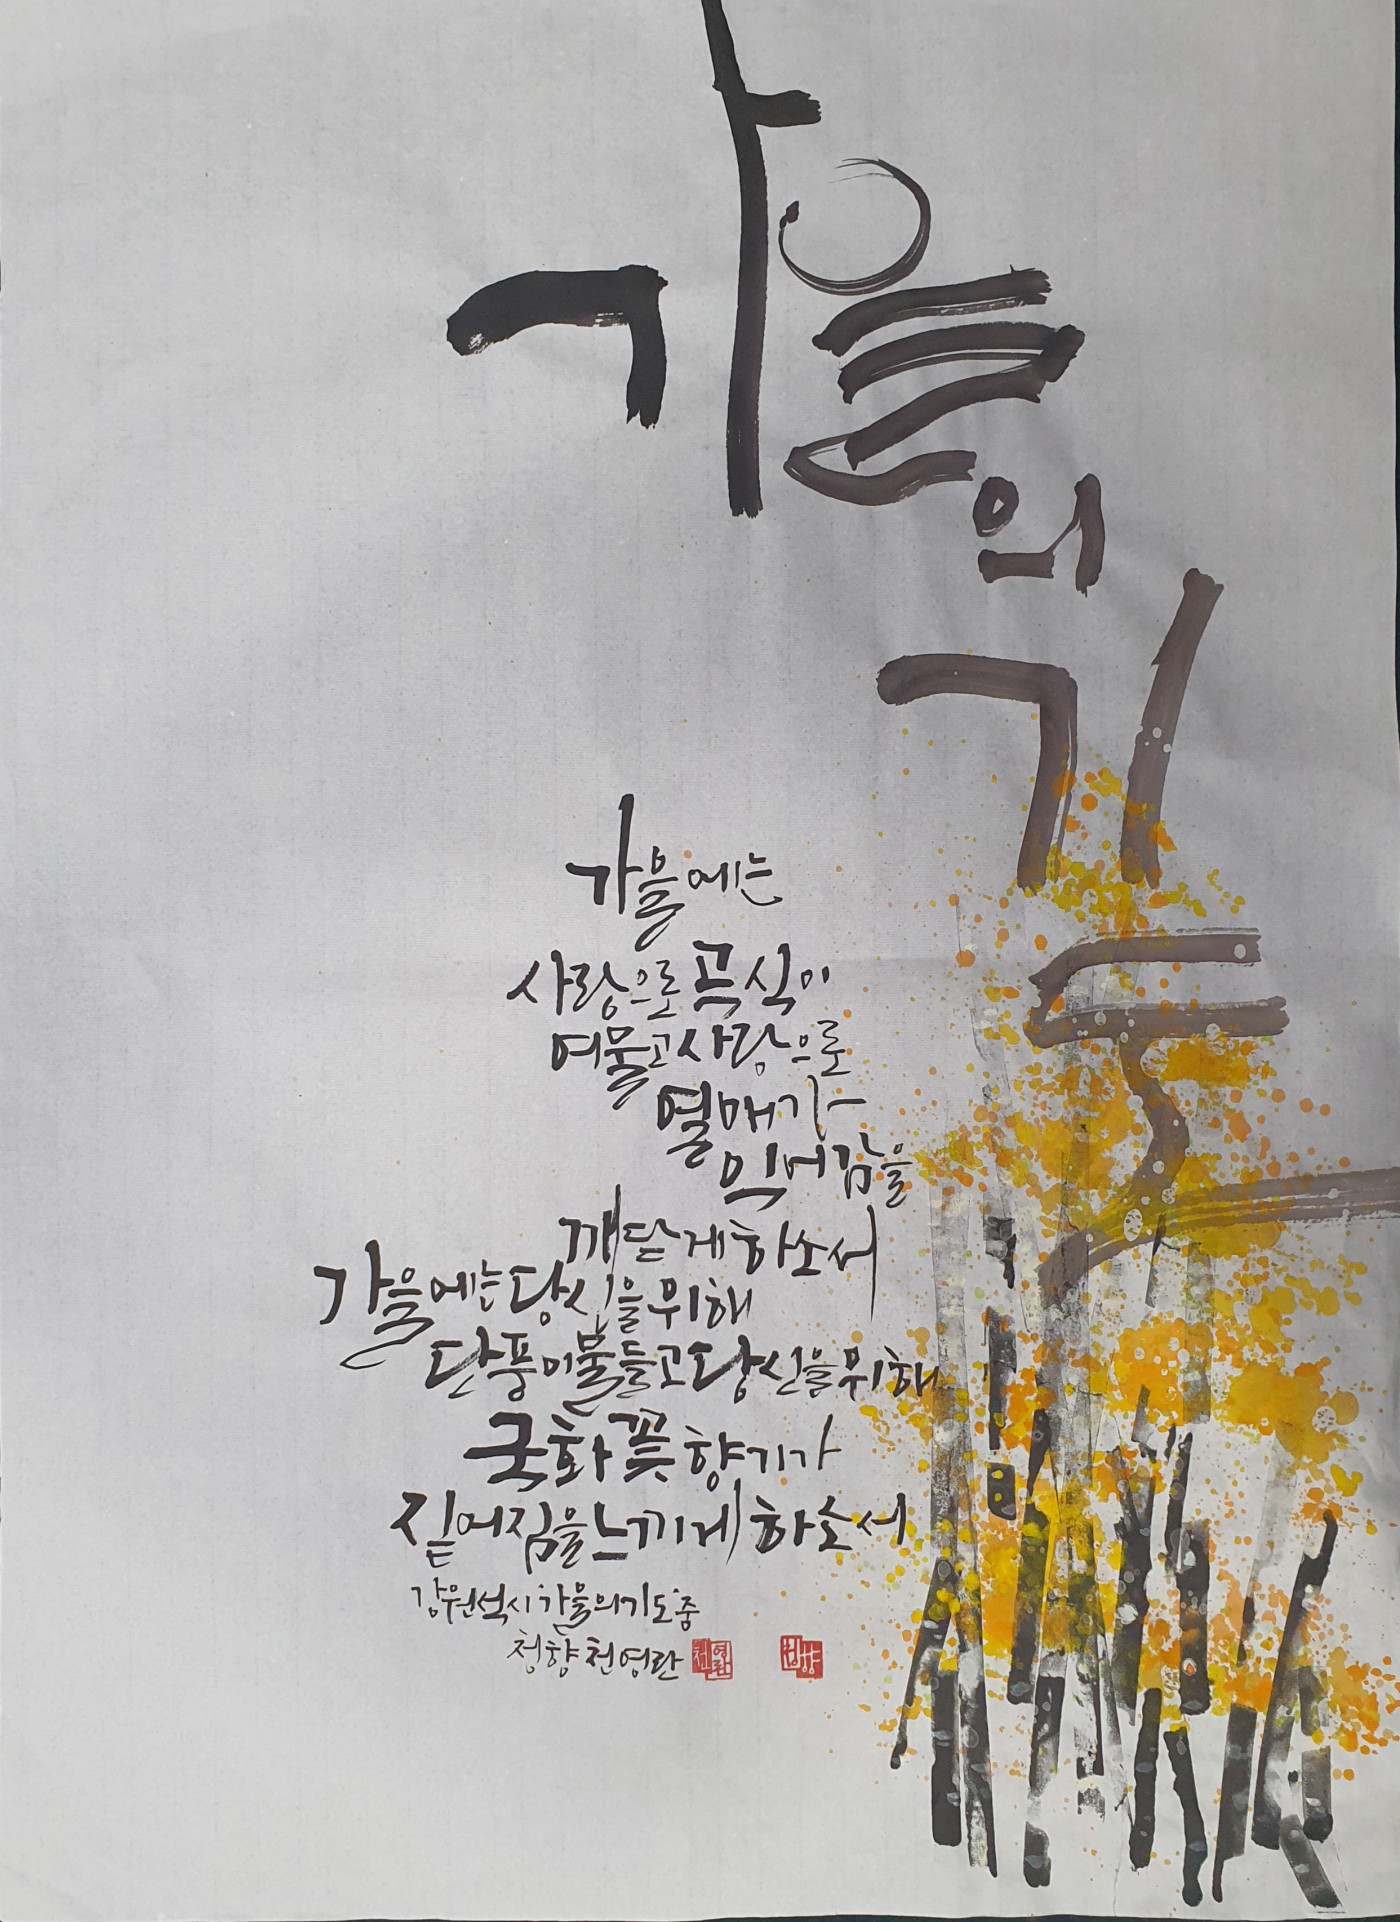 가을의
기도
가을에는
사랑으로 곡식이
여물고 사랑으로
열매가
익어감을
깨닫게 하소서
가을에는 당신을 위해
단풍이 물들고 당신을 위해
국화꽃 향기가
짙어짐을 느끼게 하소서
강원석시 가을의 기도 중
청향 천영란